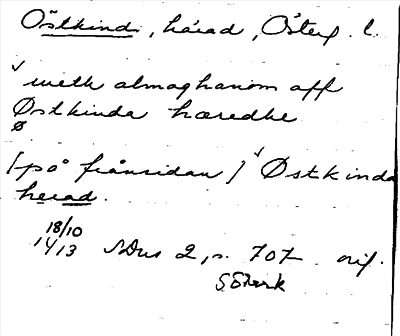 Östkind, härad, Österg. l.
meth almoghanom aff
Østkinda hæredhe
Ø
[på frånsidan] Østkinda
herad.
18/10
1413 SDns 2, s. 707. orig.